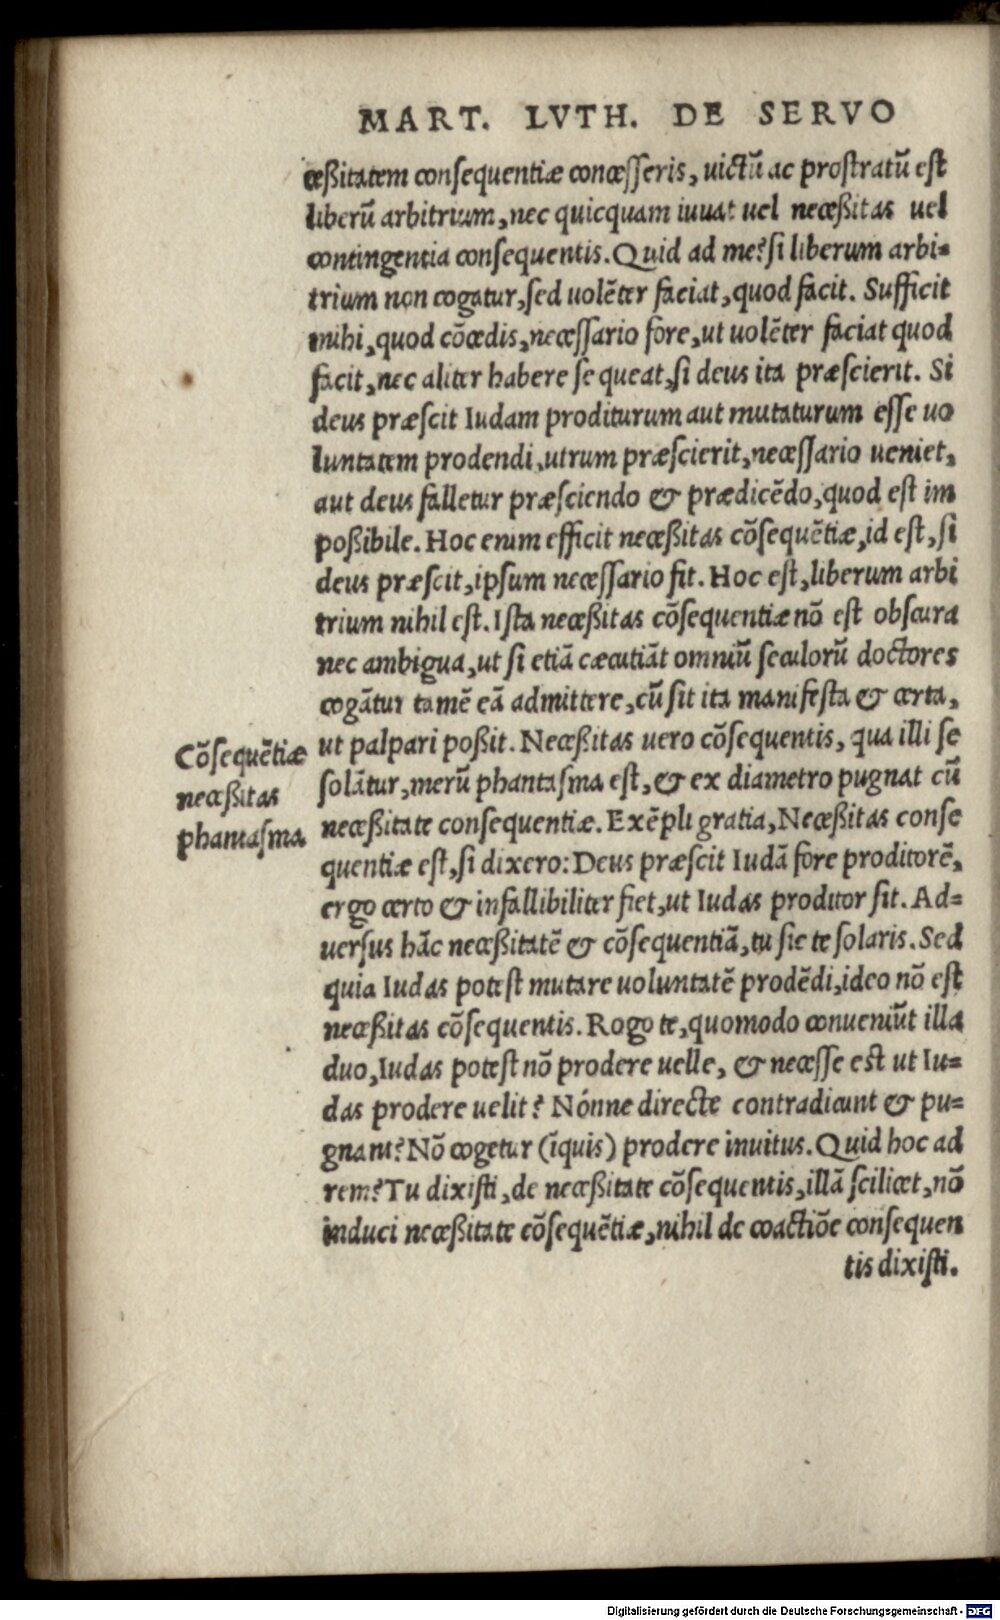 MART. LVTH. DE SERVO
ceßitatem consequentiæ concesseris, uictũ ac prostratũ est
liberũ arbitrium, nec quicquam iuuat uel neceßitas uel
contingentia consequentis. Quid ad me? si liberum arbi=
trium non cogatur, sed uolẽter faciat, quod facit. Sufficit
mihi, quod cõcedis, necessario fore, ut uolẽter faciat quod
facit, nec aliter habere se queat, si deus ita præscierit. Si
deus præscit Iudam proditurum aut mutaturum esse uo
luntatem prodendi, utrum præscierit, necessario ueniet,
aut deus falletur præsciendo & prædicẽdo, quod est im
poßibile. Hoc enim efficit neceßitas cõsequẽtiæ, id est, si
deus præscit, ipsum necessario fit. Hoc est, liberum arbi
trium nihil est. Ista neceßitas cõsequentiæ nõ est obscura
nec ambigua, ut si etiã cæcutiãt omniũ seculorũ doctores
cogãtur tamẽ eã admittere, cũ sit ita manifesta & certa,
ut palpari poßit. Neceßitas uero cõsequentis, qua illi se
solãtur, merũ phantasma est, & ex diametro pugnat cũ
neceßitate consequentiæ. Exẽpli gratia, Neceßitas conse
quentiæ est, si dixero: Deus præscit Iudã fore proditorẽ,
ergo certo & infallibiliter fiet, ut Iudas proditor sit. Ad=
uersus hãc neceßitatẽ & cõsequentiã, tu sic te solaris. Sed
quia Iudas potest mutare uoluntatẽ prodẽdi, ideo nõ est
neceßitas cõsequentis. Rogo te, quomodo conueniũt illa
duo, Iudas potest nõ prodere uelle, & necesse est ut Iu=
das prodere uelit? Nónne directe contradicunt & pu=
gnant? Nõ cogetur (ĩquis) prodere inuitus. Quid hoc ad
rem? Tu dixisti, de neceßitate cõsequentis, illã scilicet, nõ
induci neceßitate cõsequẽtiæ, nihil de coactiõe consequen
tis dixisti.
Cõsequẽtiæ
neceßitas
phantasma.
Digitalisierung gefördert durch die Deutsche Forschungsgemeinschaft - DFG